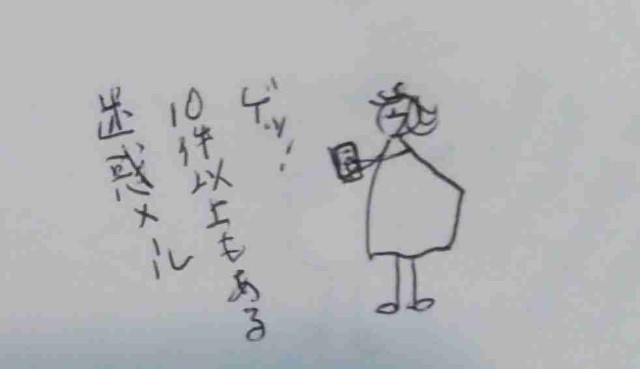 ゲッ!
10件以上もある
迷惑メール